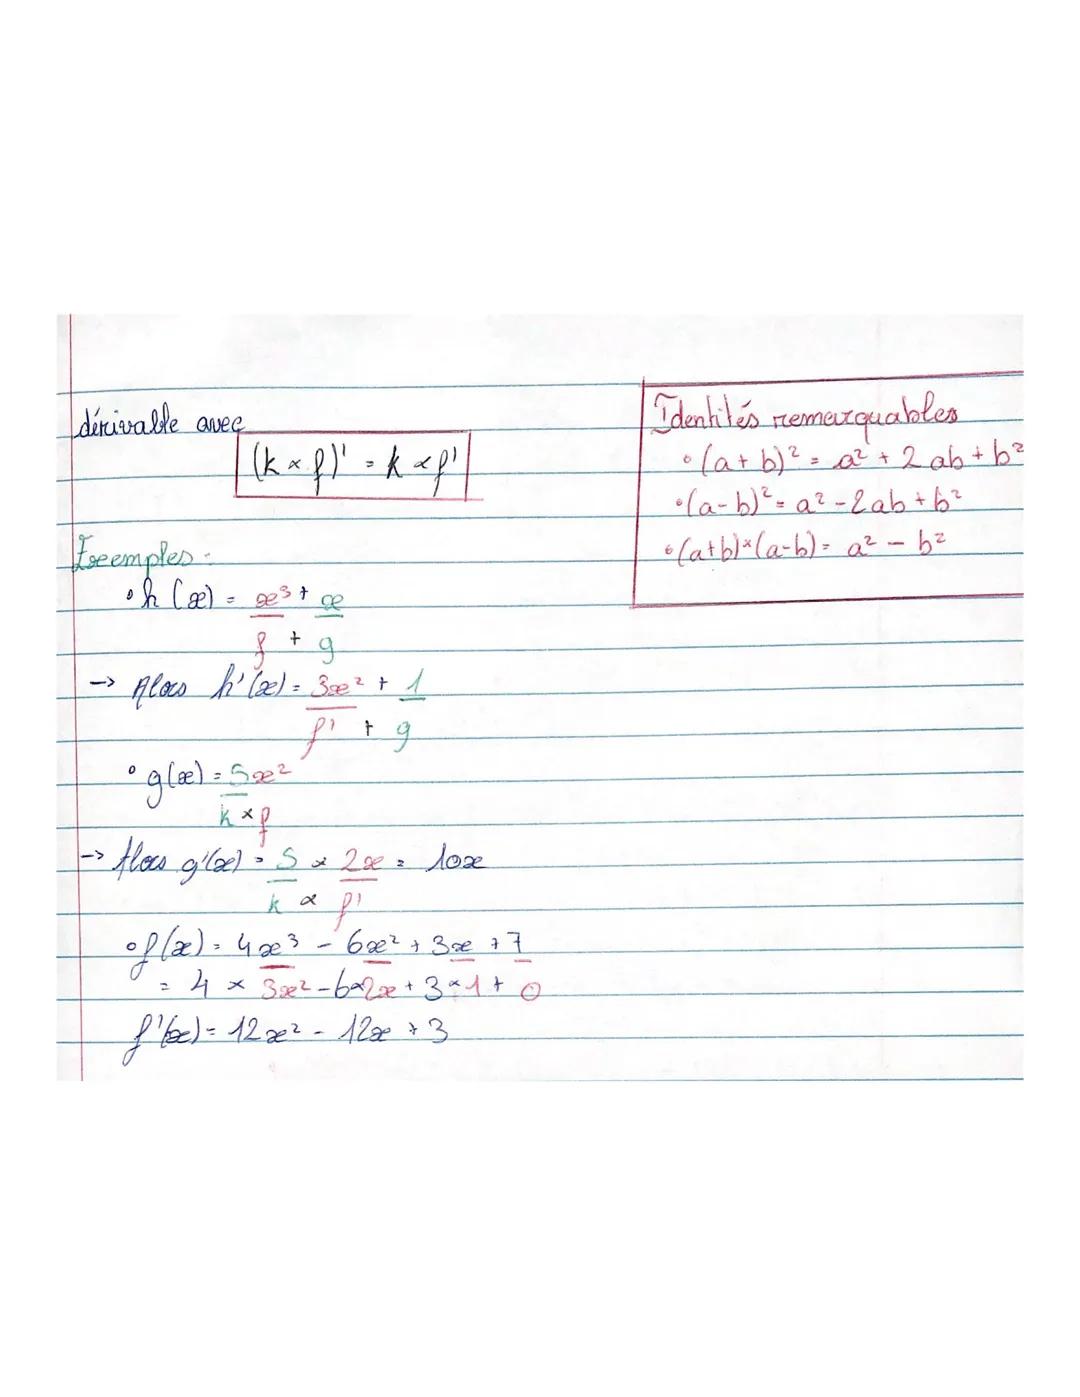 dérivable avec
(k × f)' = k × f'
Identités remarquables
• (a + b)² = a² + 2 ab + b²
• (a - b)² = a² - 2 ab + b²
• (a+b)×(a-b) = a² - b²
Exemples :
• h (x) = x³ + x
f + g
-> Alors h'(x) = 3x² + 1
f' + g
• g(x) = 5x²
k × f
-> Alors g'(x) = 5 × 2x = 10x
k × f'
• f(x) = 4x³ - 6x² + 3x + 7
= 4 × 3x² - 6×2x + 3×1 + 0
f'(x) = 12x² - 12x + 3